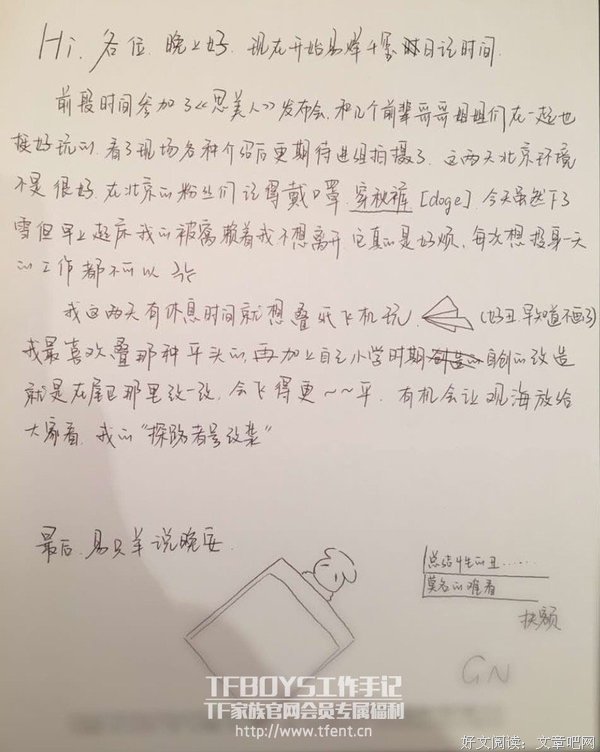 Hi. 各位. 晚上好. 现在开始易烊千玺日记时间.
前段时间参加了《思美人》发布会,和几个前辈哥哥姐姐们在一起也
挺好玩的,看了现场各种介绍后更期待进组拍摄了.这两天北京环境
不是很好,在北京的粉丝们记得戴口罩,穿秋裤[doge]今天虽然下了
雪但早上起床我的被窝赖着我不想离开 它真的是好烦,每次想投身一天
的工作都不可以
我这两天有休息时间就想叠纸飞机玩. (好丑.早知道不画了)
我最喜欢叠那种平头的,再加上自己小学时期 自创的改造
就是在尾巴那里改一改,会飞得更~~平. 有机会让观海放给
大家看.我的“探路者号改装”
最后.易只羊说晚安.
总结性的丑……
莫名的难看
扶额
GN
TFBOYS工作手记
TF家族官网会员专属福利
http://www.tfent.cn
好文阅读:文章吧网